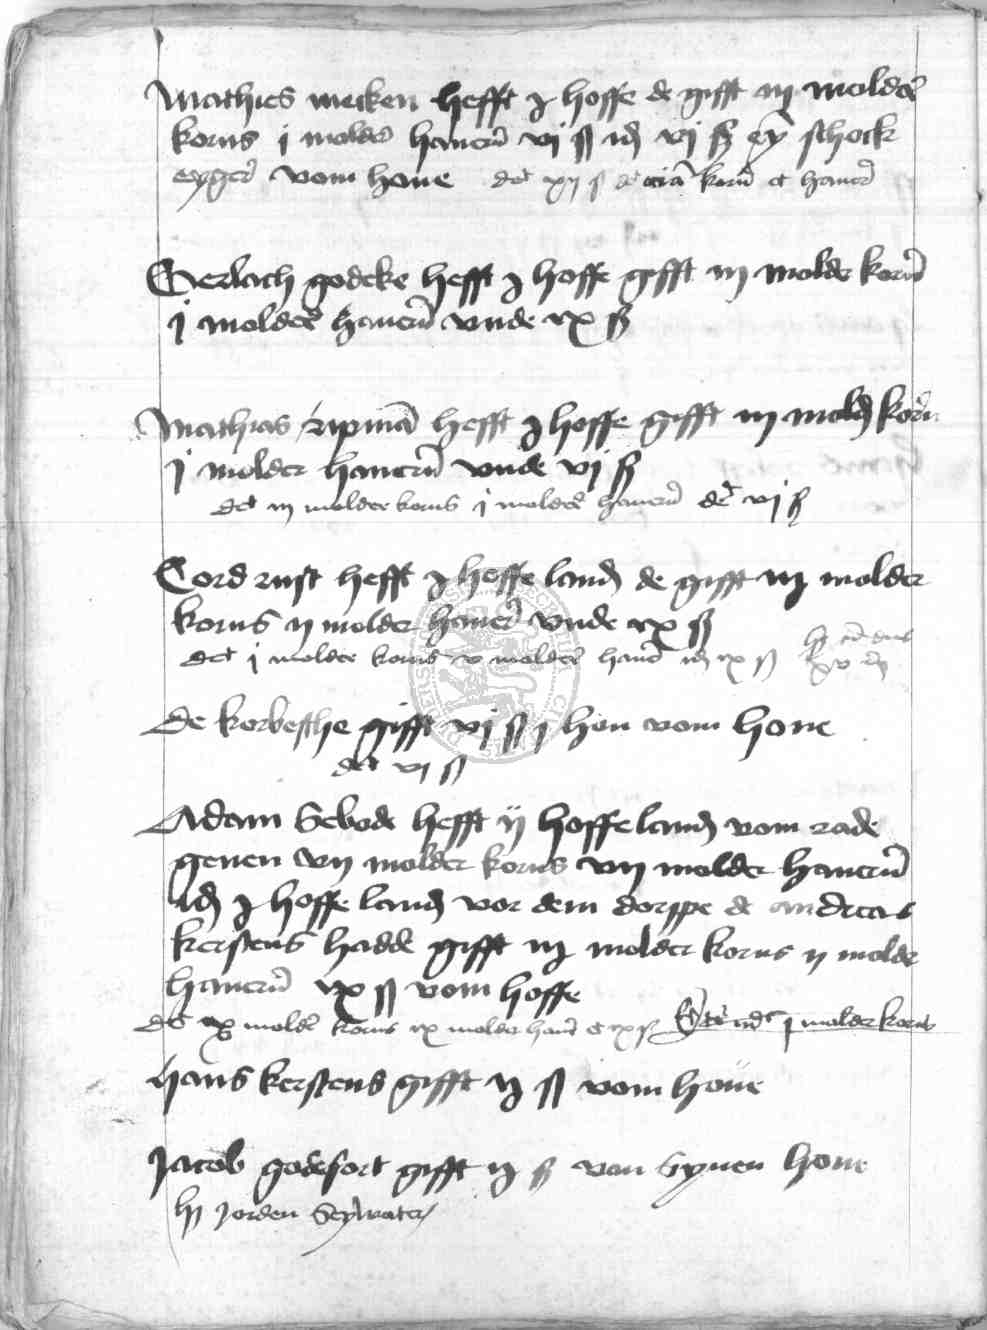 Mathies mecken hefft j hoffe de gifft iij molder
korns j molder hauern vj ß vj ß schock
eyger vom houe det korn et hauern
Gerlach godeke hefft j hoffe gifft iij molder korn
j molder hauern vnde ix ß
Mathias ripman hefft j hoffe gifft iij molder korn
j molder hauern vnde vj ß
det iij molder korns j molder hauern vj ß
Cord rust hefft j hoffe landes de gifft iij molder
korns ij molder hauern vnde ix ß
det j molder korns v molder hauern ix ß
De korbesche gifft vj ß j hon vom houe
det vj ß
Adam Sebode hefft ij hoffe landes vom rade
geuen vij molder korns vij molder hauern
j hoffe landes vor dem dorppe de andreas
kerstens hadde gifft iij molder korns ij molder
hauern ix ß vom hoffe
det molder korns ix molder hauern et ix ß j molder korns
hans kerstens gifft ij ß vom houe
Jacob godefort gifft ij ß van Synen houe
Jorden Seywater